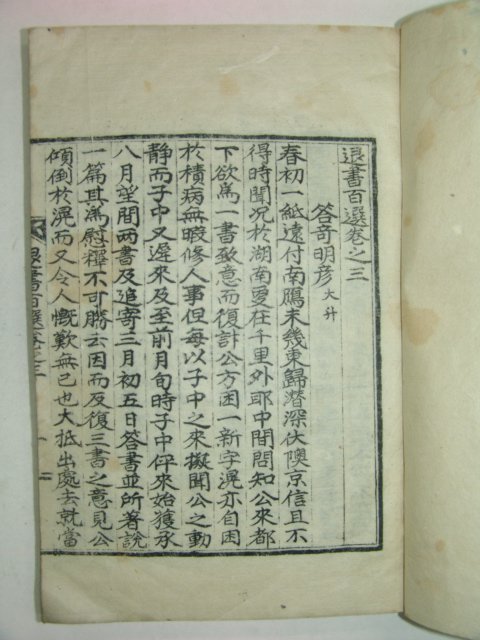 退書百選卷之三
答奇明彦 大升
春初一紙遠付南鴈未幾東歸潜深伏隩京信且不
得時聞况於湖南爱在千里外耶中間問知公來都
下欲爲一書致意而復計公方困一新字滉亦自困
於積病無暇修人事但每以子中之來擬聞公之動
静而子中又遲來及至前月旬時子中伻來始獲承
八月望間兩書及追寄三月初五日答書並所著說
一篇其爲慰釋不可勝云因而及復三書之意見公
傾倒於滉而又令人慨歎無已也大抵出處去就當
退書百選卷之三